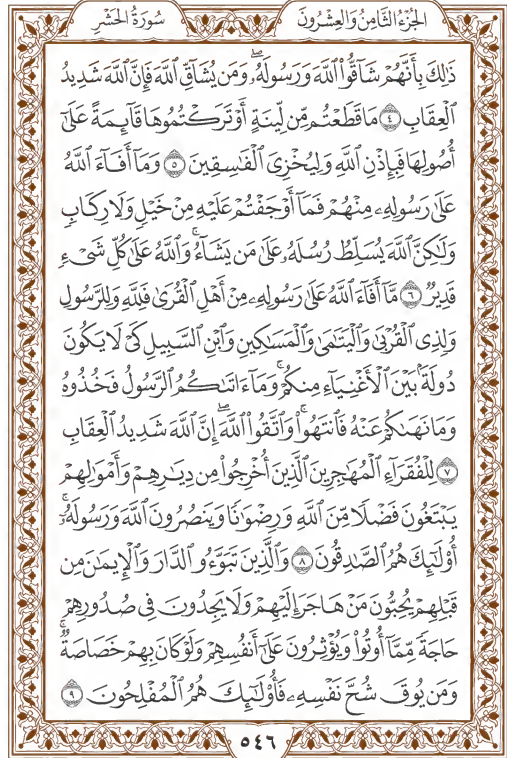 الجُزْءُ الثَّامِنُ وَالعِشْرُونَ
سُورَةُ الحَشْرِ
ذَٰلِكَ بِأَنَّهُمْ شَآقُّوا۟ ٱللَّهَ وَرَسُولَهُۥ ۖ وَمَن يُشَآقِّ ٱللَّهَ فَإِنَّ ٱللَّهَ شَدِيدُ
ٱلْعِقَابِ ٤ مَا قَطَعْتُم مِّن لِّينَةٍ أَوْ تَرَكْتُمُوهَا قَآئِمَةً عَلَىٰٓ
أُصُولِهَا فَبِإِذْنِ ٱللَّهِ وَلِيُخْزِىَ ٱلْفَـٰسِقِينَ ٥ وَمَآ أَفَآءَ ٱللَّهُ
عَلَىٰ رَسُولِهِۦ مِنْهُمْ فَمَآ أَوْجَفْتُمْ عَلَيْهِ مِنْ خَيْلٍ وَلَا رِكَابٍ
وَلَـٰكِنَّ ٱللَّهَ يُسَلِّطُ رُسُلَهُۥ عَلَىٰ مَن يَشَآءُ ۚ وَٱللَّهُ عَلَىٰ كُلِّ شَىْءٍ
قَدِيرٌ ٦ مَّآ أَفَآءَ ٱللَّهُ عَلَىٰ رَسُولِهِۦ مِنْ أَهْلِ ٱلْقُرَىٰ فَلِلَّهِ وَلِلرَّسُولِ
وَلِذِى ٱلْقُرْبَىٰ وَٱلْيَتَـٰمَىٰ وَٱلْمَسَـٰكِينِ وَٱبْنِ ٱلسَّبِيلِ كَىْ لَا يَكُونَ
دُولَةًۢ بَيْنَ ٱلْأَغْنِيَآءِ مِنكُمْ ۚ وَمَآ ءَاتَىٰكُمُ ٱلرَّسُولُ فَخُذُوهُ
وَمَا نَهَىٰكُمْ عَنْهُ فَٱنتَهُوا۟ ۚ وَٱتَّقُوا۟ ٱللَّهَ ۖ إِنَّ ٱللَّهَ شَدِيدُ ٱلْعِقَابِ
٧ لِلْفُقَرَآءِ ٱلْمُهَـٰجِرِينَ ٱلَّذِينَ أُخْرِجُوا۟ مِن دِيَـٰرِهِمْ وَأَمْوَٰلِهِمْ
يَبْتَغُونَ فَضْلًا مِّنَ ٱللَّهِ وَرِضْوَٰنًا وَيَنصُرُونَ ٱللَّهَ وَرَسُولَهُۥٓ ۚ
أُو۟لَـٰٓئِكَ هُمُ ٱلصَّـٰدِقُونَ ٨ وَٱلَّذِينَ تَبَوَّءُو ٱلدَّارَ وَٱلْإِيمَـٰنَ مِن
قَبْلِهِمْ يُحِبُّونَ مَنْ هَاجَرَ إِلَيْهِمْ وَلَا يَجِدُونَ فِى صُدُورِهِمْ
حَاجَةً مِّمَّآ أُوتُوا۟ وَيُؤْثِرُونَ عَلَىٰٓ أَنفُسِهِمْ وَلَوْ كَانَ بِهِمْ خَصَاصَةٌ ۚ
وَمَن يُوقَ شُحَّ نَفْسِهِۦ فَأُو۟لَـٰٓئِكَ هُمُ ٱلْمُفْلِحُونَ ٩
٥٤٦